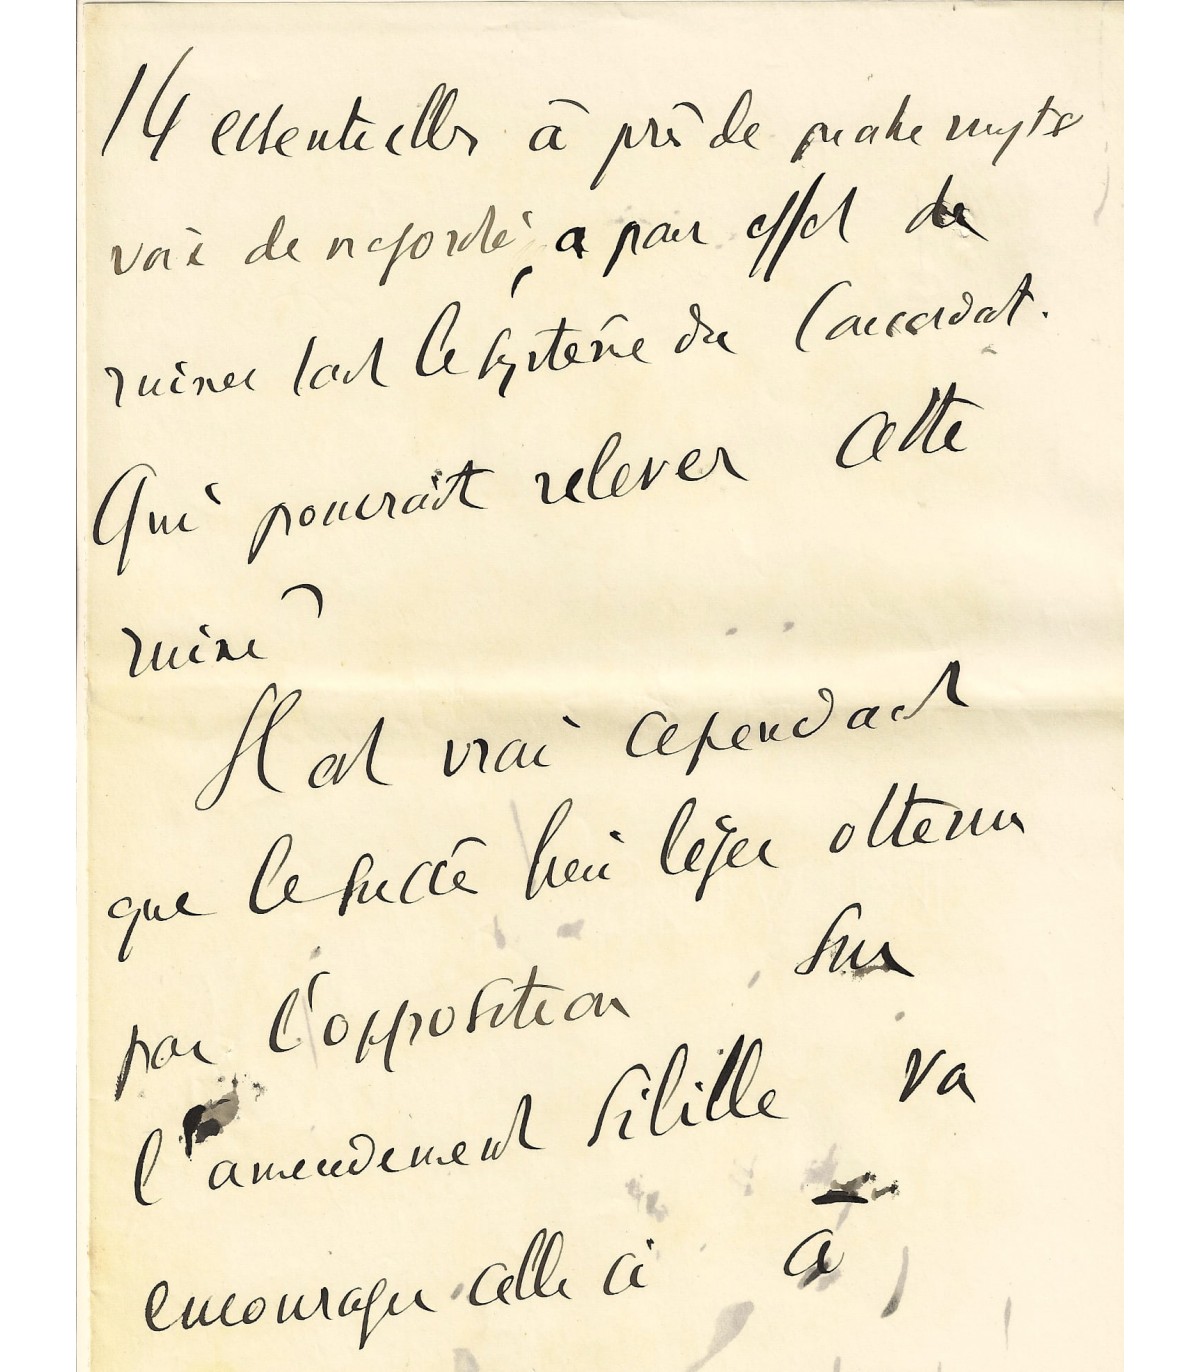 14 essentielles à près de quatre vingts
voix de majorité, a pour effet de
ruiner tout le système du Concordat.
Qui pourrait relever cette
ruine ?
Il est vrai cependant
que le succès bien léger obtenu
par l'opposition sur
l'amendement Sibille va
encourager celle ci à